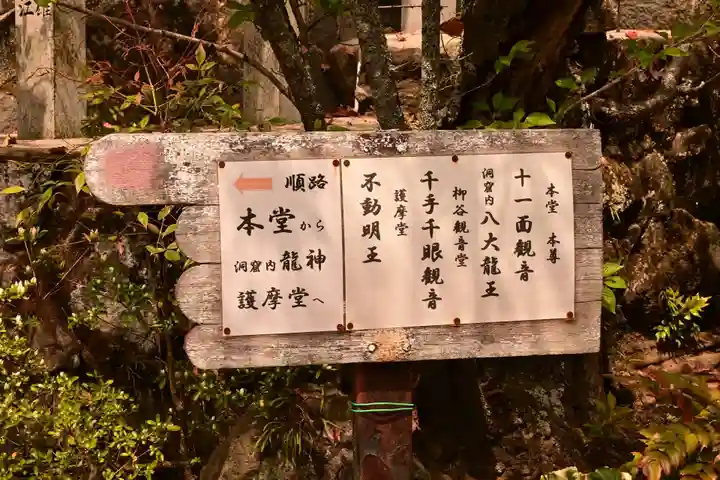 順路
本堂から
洞窟内龍神
護摩堂へ
本堂 本尊
十一面観音
洞窟内八大龍王
柳谷観音堂
千手千眼観音
護摩堂
不動明王